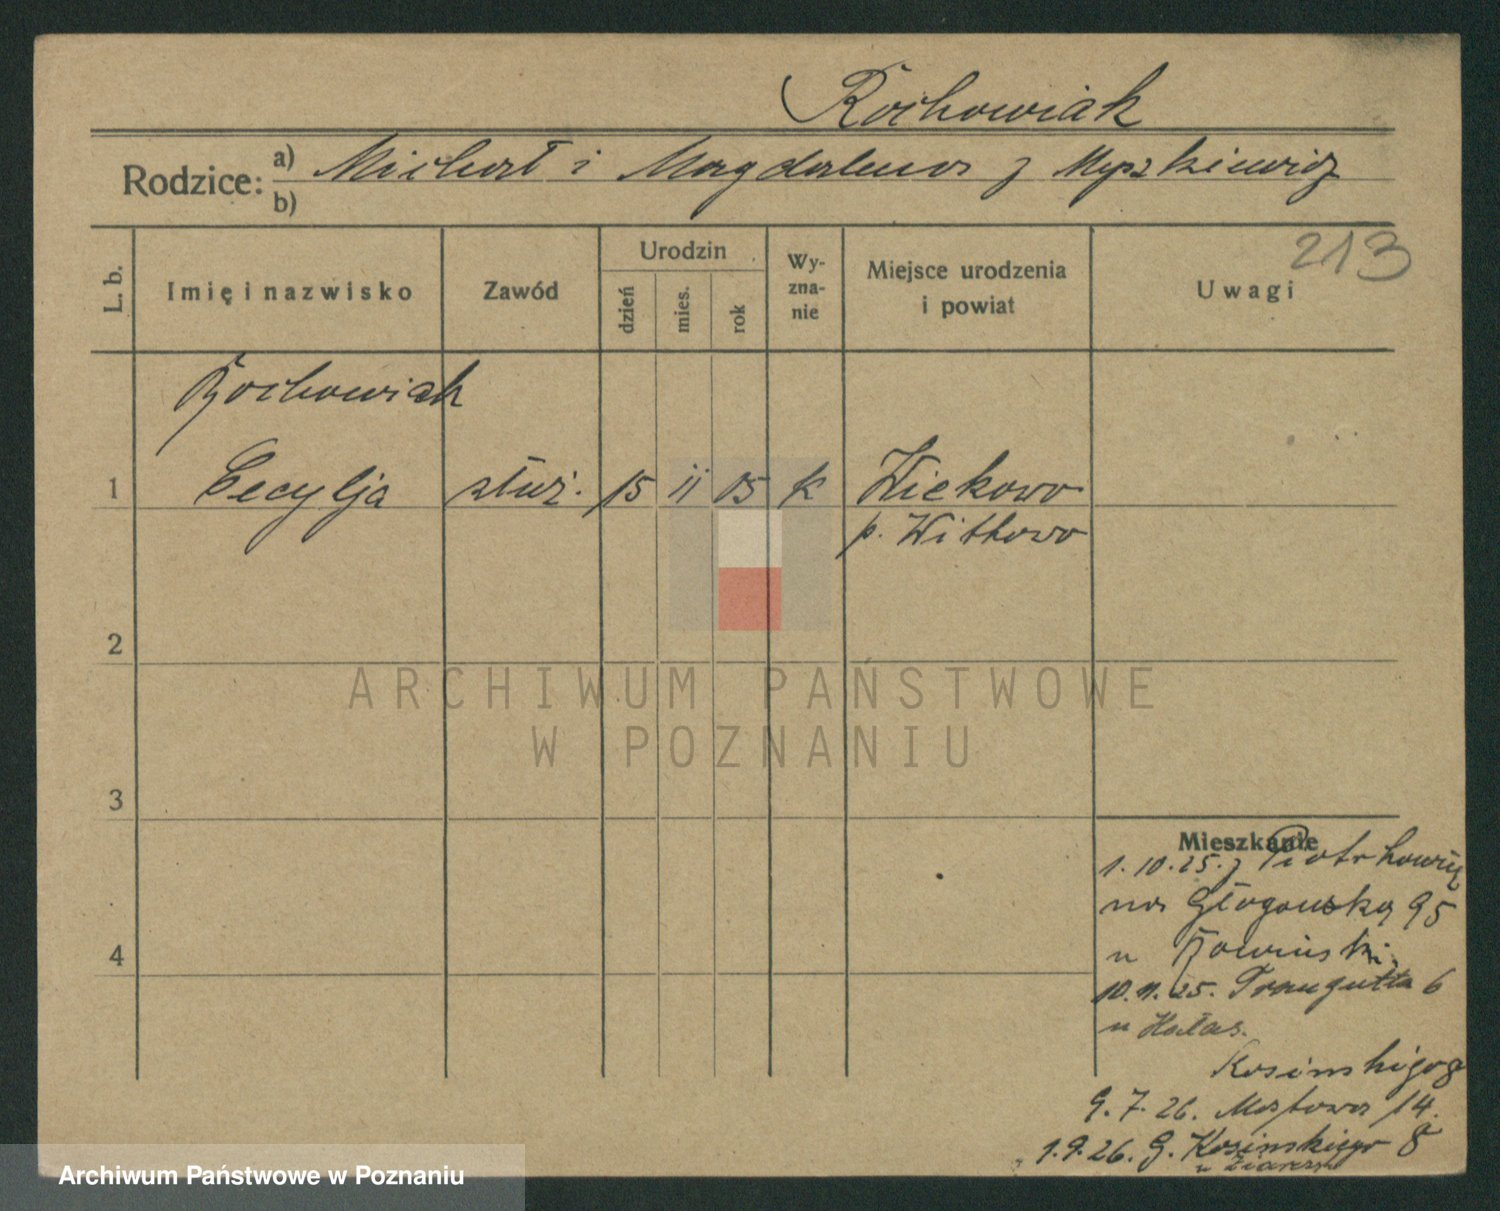 Rochowiak
Rodzice: a) Michał i Magdalena z Myszkiewicz
b)
213
L. b.
Imię i nazwisko
Zawód
Urodzin
dzień
mies.
rok
Wy-
zna-
nie
Miejsce urodzenia
i powiat
Uwagi
Rochowiak
1 Cecylja służ. 15 ii 05 k Wiekowo
p. Witkowo
2
3
4
Mieszkanie
1.10.25. z Piotrkowic
na Głogowską 95
u Rowiński.
10.11.25. Traugutta 6
u Hałas.
Kosinskigo 8
9.7.26. Mostowa 14.
1.9.26. G. Kosinskiego 8
u
ARCHIWUM PAŃSTWOWE
W POZNANIU
Archiwum Państwowe w Poznaniu